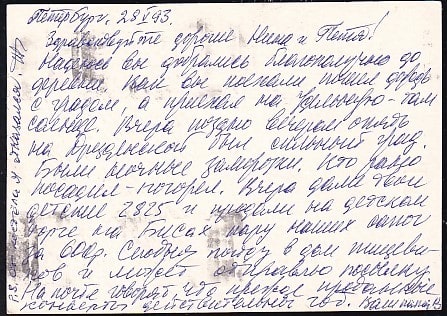 Петербург. 28 V 93.
Здравствуйте дорогие Нина и Петя!
Надеюсь вы добрались благополучно до
деревни. Как вы поехали пошел дождь
с градом, а приехал на там
солнце. Вчера поздно вечером опять
на был сильный град.
Были ночные заморозки. Кто рано
посадил - погорел. Вчера дали твои
детские 2825 и продали на детском
пару наших сапог
за 600р. Сегодня пойду в дом
и может отправлю посылку.
На почте говорят, что прежде
конверты действительны Ваш папа
P.S.